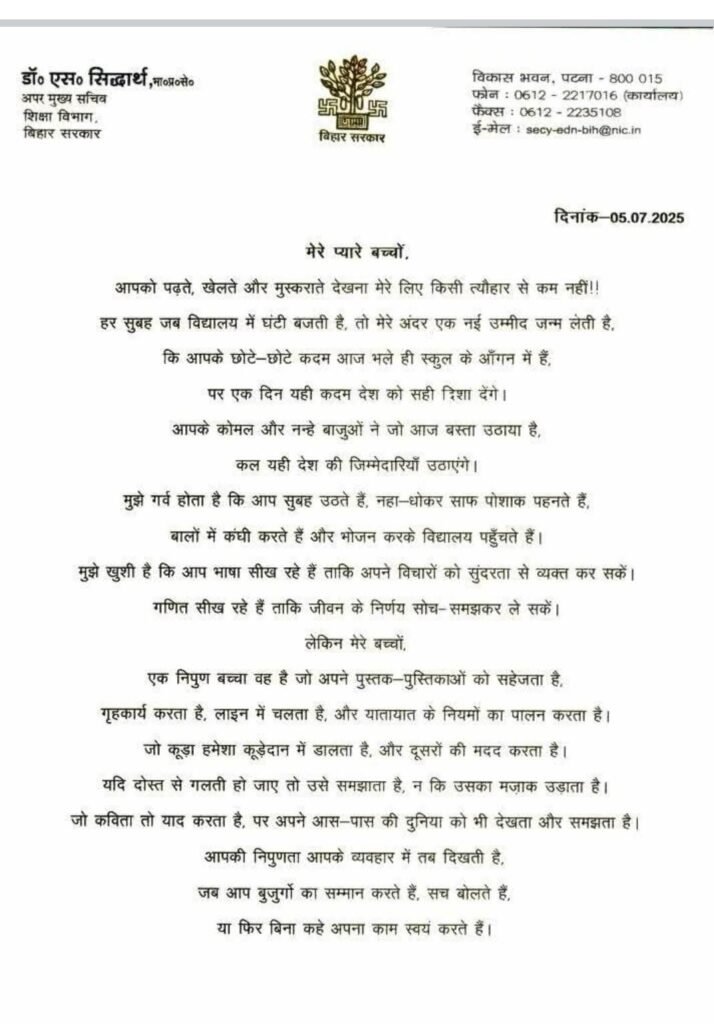 डॉ० एस० सिद्धार्थ,भा०प्र०से०
अपर मुख्य सचिव
शिक्षा विभाग,
बिहार सरकार
बिहार सरकार
विकास भवन, पटना - 800 015
फोन : 0612 - 2217016 (कार्यालय)
फैक्स : 0612 - 2235108
ई-मेल : secy-edn-bih@nic.in
दिनांक–05.07.2025
मेरे प्यारे बच्चों,
आपको पढ़ते, खेलते और मुस्कराते देखना मेरे लिए किसी त्यौहार से कम नहीं!!
हर सुबह जब विद्यालय में घंटी बजती है, तो मेरे अंदर एक नई उम्मीद जन्म लेती है,
कि आपके छोटे–छोटे कदम आज भले ही स्कूल के आँगन में हैं,
पर एक दिन यही कदम देश को सही दिशा देंगे।
आपके कोमल और नन्हे बाजुओं ने जो आज बस्ता उठाया है,
कल यही देश की जिम्मेदारियाँ उठाएंगे।
मुझे गर्व होता है कि आप सुबह उठते हैं, नहा–धोकर साफ पोशाक पहनते हैं,
बालों में कंघी करते हैं और भोजन करके विद्यालय पहुँचते हैं।
मुझे खुशी है कि आप भाषा सीख रहे हैं ताकि अपने विचारों को सुंदरता से व्यक्त कर सकें।
गणित सीख रहे हैं ताकि जीवन के निर्णय सोच–समझकर ले सकें।
लेकिन मेरे बच्चों,
एक निपुण बच्चा वह है जो अपने पुस्तक–पुस्तिकाओं को सहेजता है,
गृहकार्य करता है, लाइन में चलता है, और यातायात के नियमों का पालन करता है।
जो कूड़ा हमेशा कूड़ेदान में डालता है, और दूसरों की मदद करता है।
यदि दोस्त से गलती हो जाए तो उसे समझाता है, न कि उसका मज़ाक उड़ाता है।
जो कविता तो याद करता है, पर अपने आस–पास की दुनिया को भी देखता और समझता है।
आपकी निपुणता आपके व्यवहार में तब दिखती है,
जब आप बुजुर्गो का सम्मान करते हैं, सच बोलते हैं,
या फिर बिना कहे अपना काम स्वयं करते हैं।